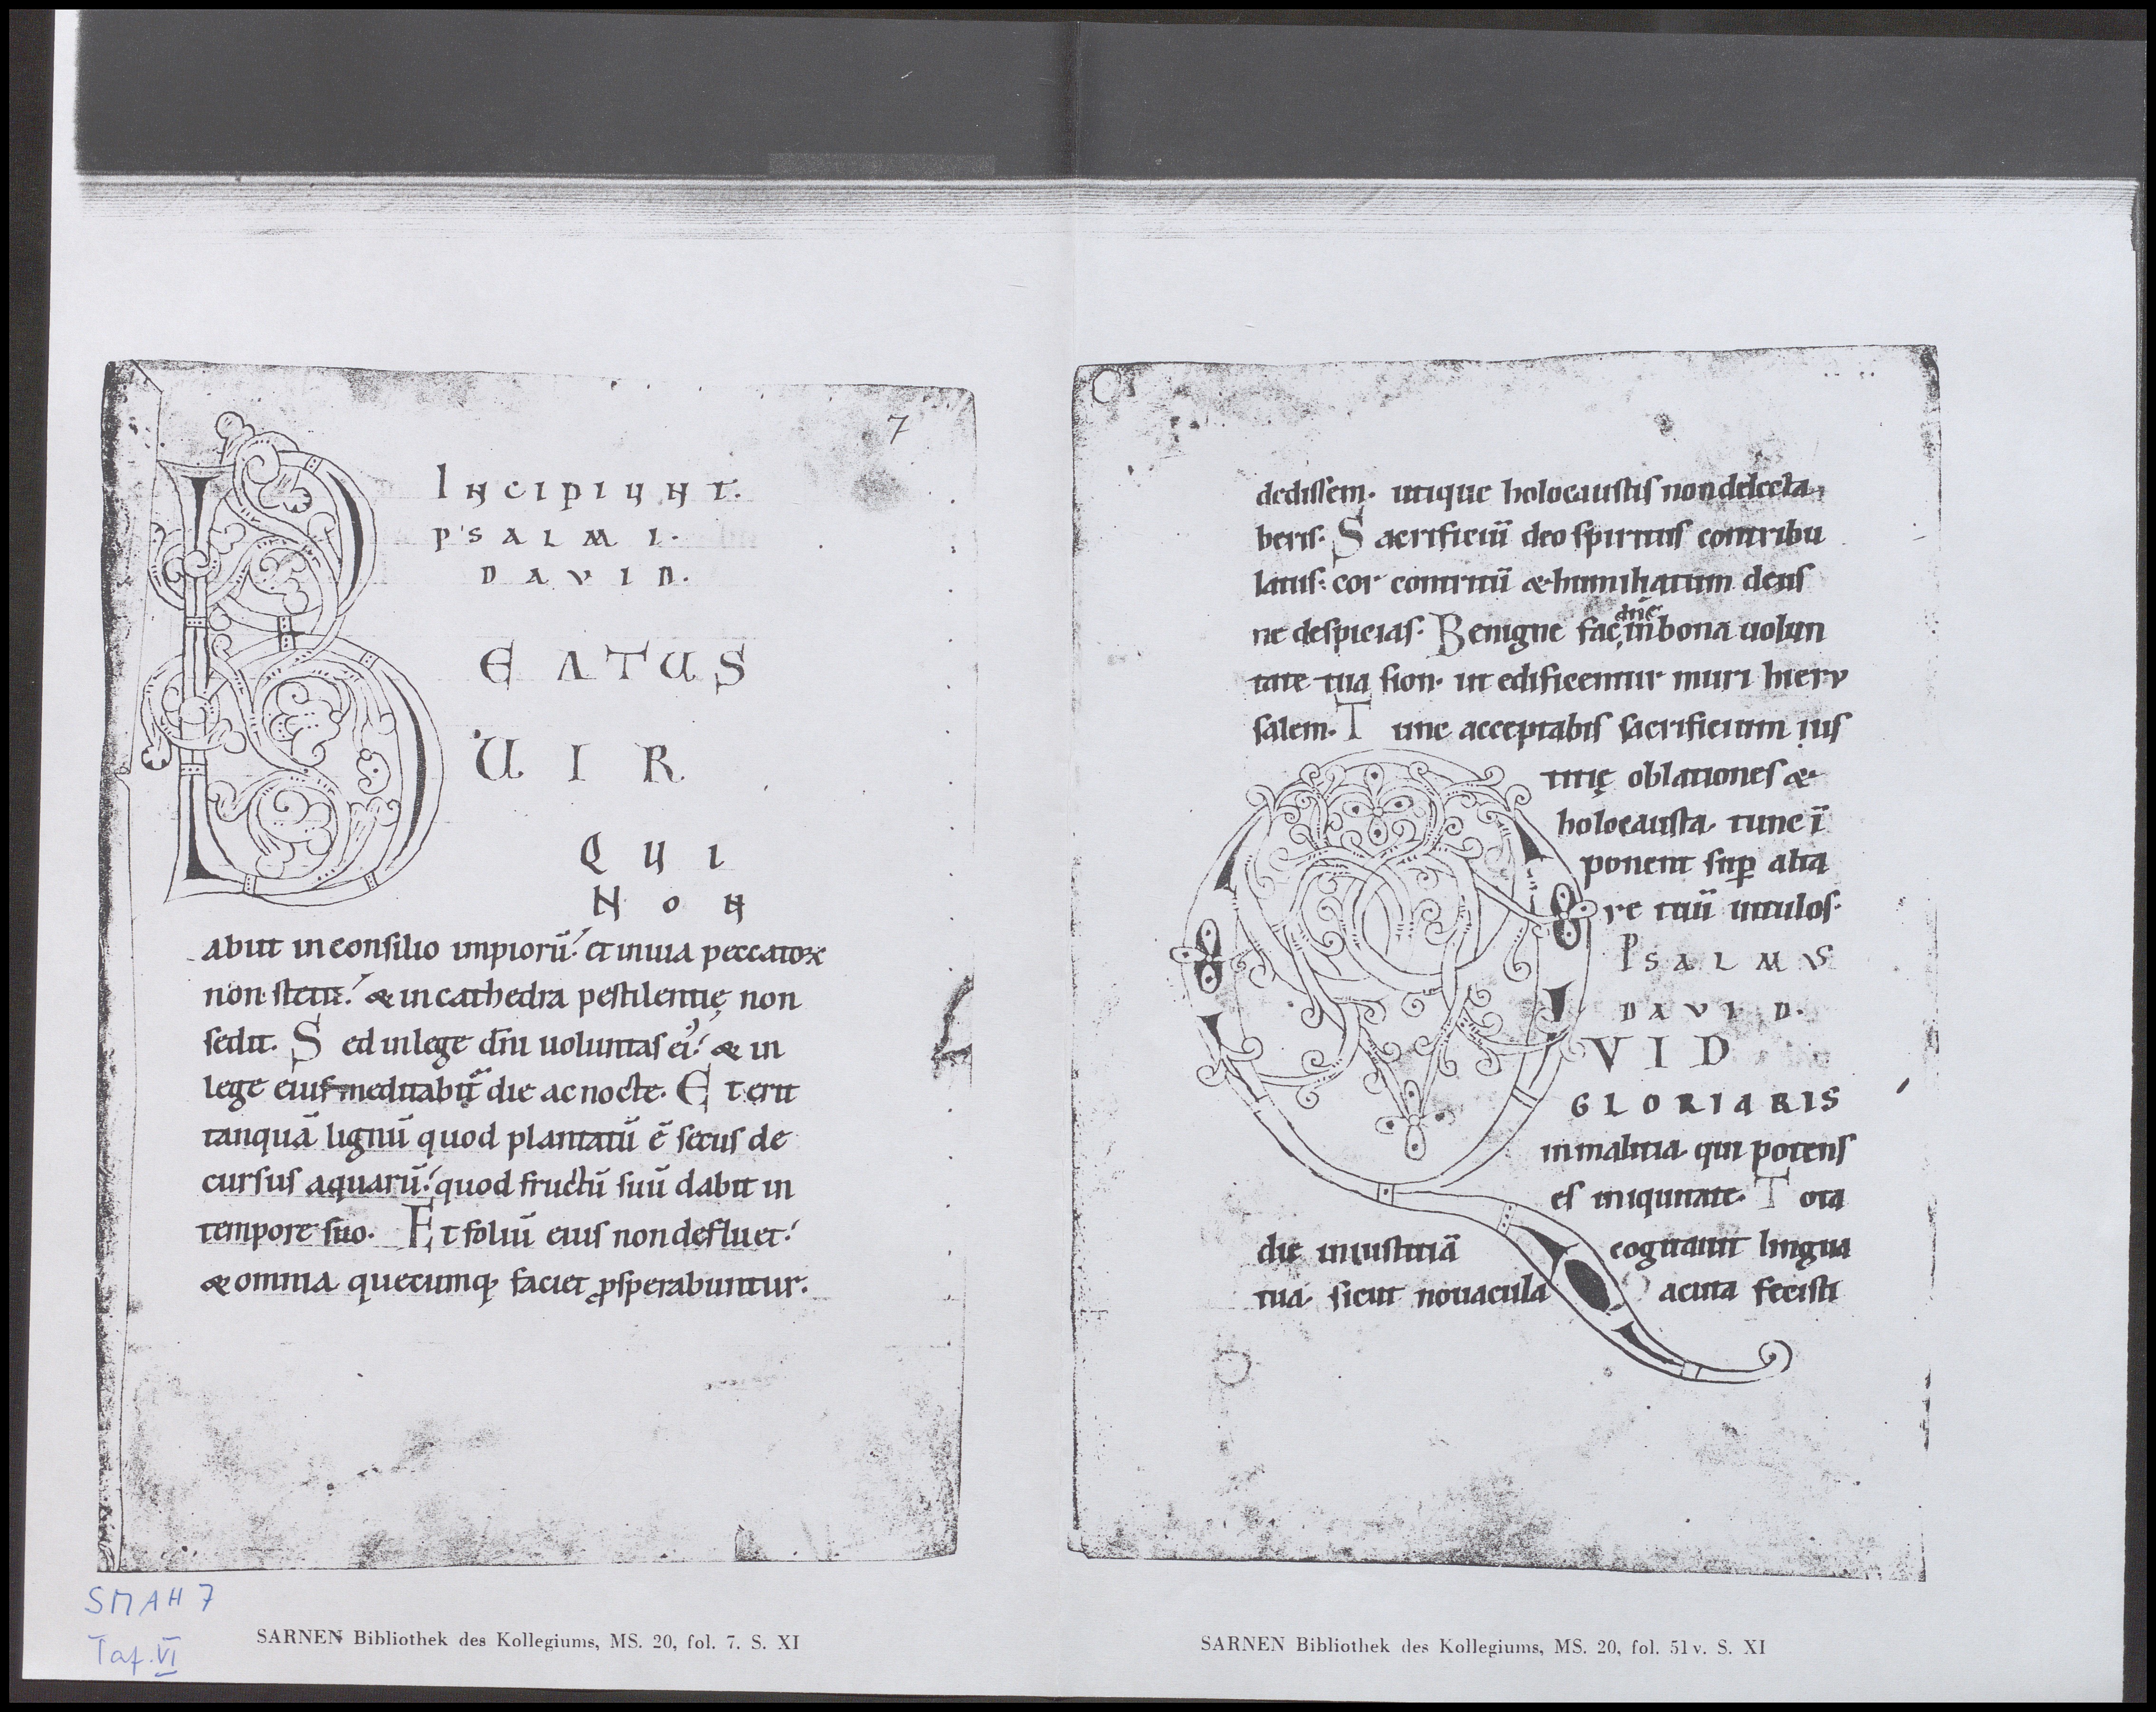 7
INCIPIUNT.
PSALMI.
DAVID.
BEATUS
UIR
QUI
NON
abiit in consilio impiorū. et in uia peccatoꝝ
non stetit. & in cathedra pestilentię non
sedit. Sed in lege dn̄i uoluntas ei᾽. & in
lege eius meditabit᷑ die ac nocte. Et erit
tanquā lignū quod plantatū ē secus de
cursus aquarū. quod fructū suū dabit in
tempore suo. Et foliū eius non defluet.
& omnia quecumq; faciet ꝓsperabuntur.
SMAH 7
Taf. VI
SARNEN Bibliothek des Kollegiums, MS. 20, fol. 7. S. XI
dedissem. utique holocaustis non delecta
beris. Sacrificiū deo spiritus contribu
latus. cor contritū & humiliatum deus
ne despicias. Benigne fac dn̄e in bona uolun
tate tua sion. ut edificentur muri hieru
salem. Tunc acceptabis sacrificium ius
titię oblationes &
holocausta. tunc ī
ponent suꝑ alta
re tuū uitulos.
PSALMUS
DAVID.
QVID
GLORIARIS
in malitia. qui potens
es iniquitate. Tota
die iniustitiā cogitauit lingua
tua. sicut nouacula acuta fecisti
SARNEN Bibliothek des Kollegiums, MS. 20, fol. 51v. S. XI